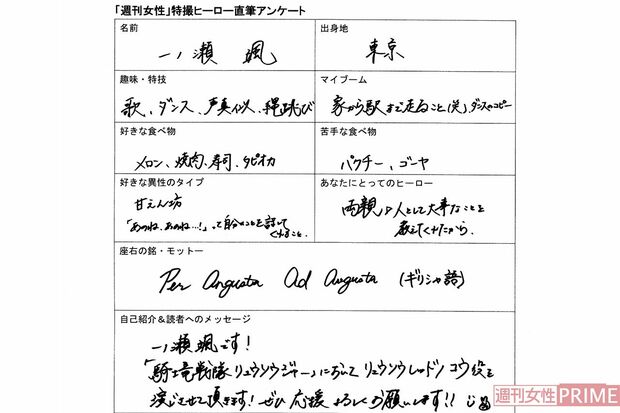 「週刊女性」特撮ヒーロー直筆アンケート
名前
出身地
一ノ瀬 颯
東京
趣味・特技
マイブーム
歌、ダンス、声真似、縄跳び
家から駅まで走ること(笑)、ダンスのコピー
好きな食べ物
苦手な食べ物
メロン、焼肉、寿司、タピオカ
パクチー、ゴーヤ
好きな異性のタイプ
あなたにとってのヒーロー
甘えん坊
「あのね、あのね、…!」って自分のことを話して
くれること。
両親 人として大事なことを
教えてくれたから。
座右の銘・モットー
Per Angusta Ad Augusta (ギリシャ語)
自己紹介&読者へのメッセージ
一ノ瀬颯です!
「騎士竜戦隊リュウソウジャー」において リュウソウレッド/コウ役を
演じさせて頂きます!ぜひ応援よろしくお願いします!!
週刊女性PRIME